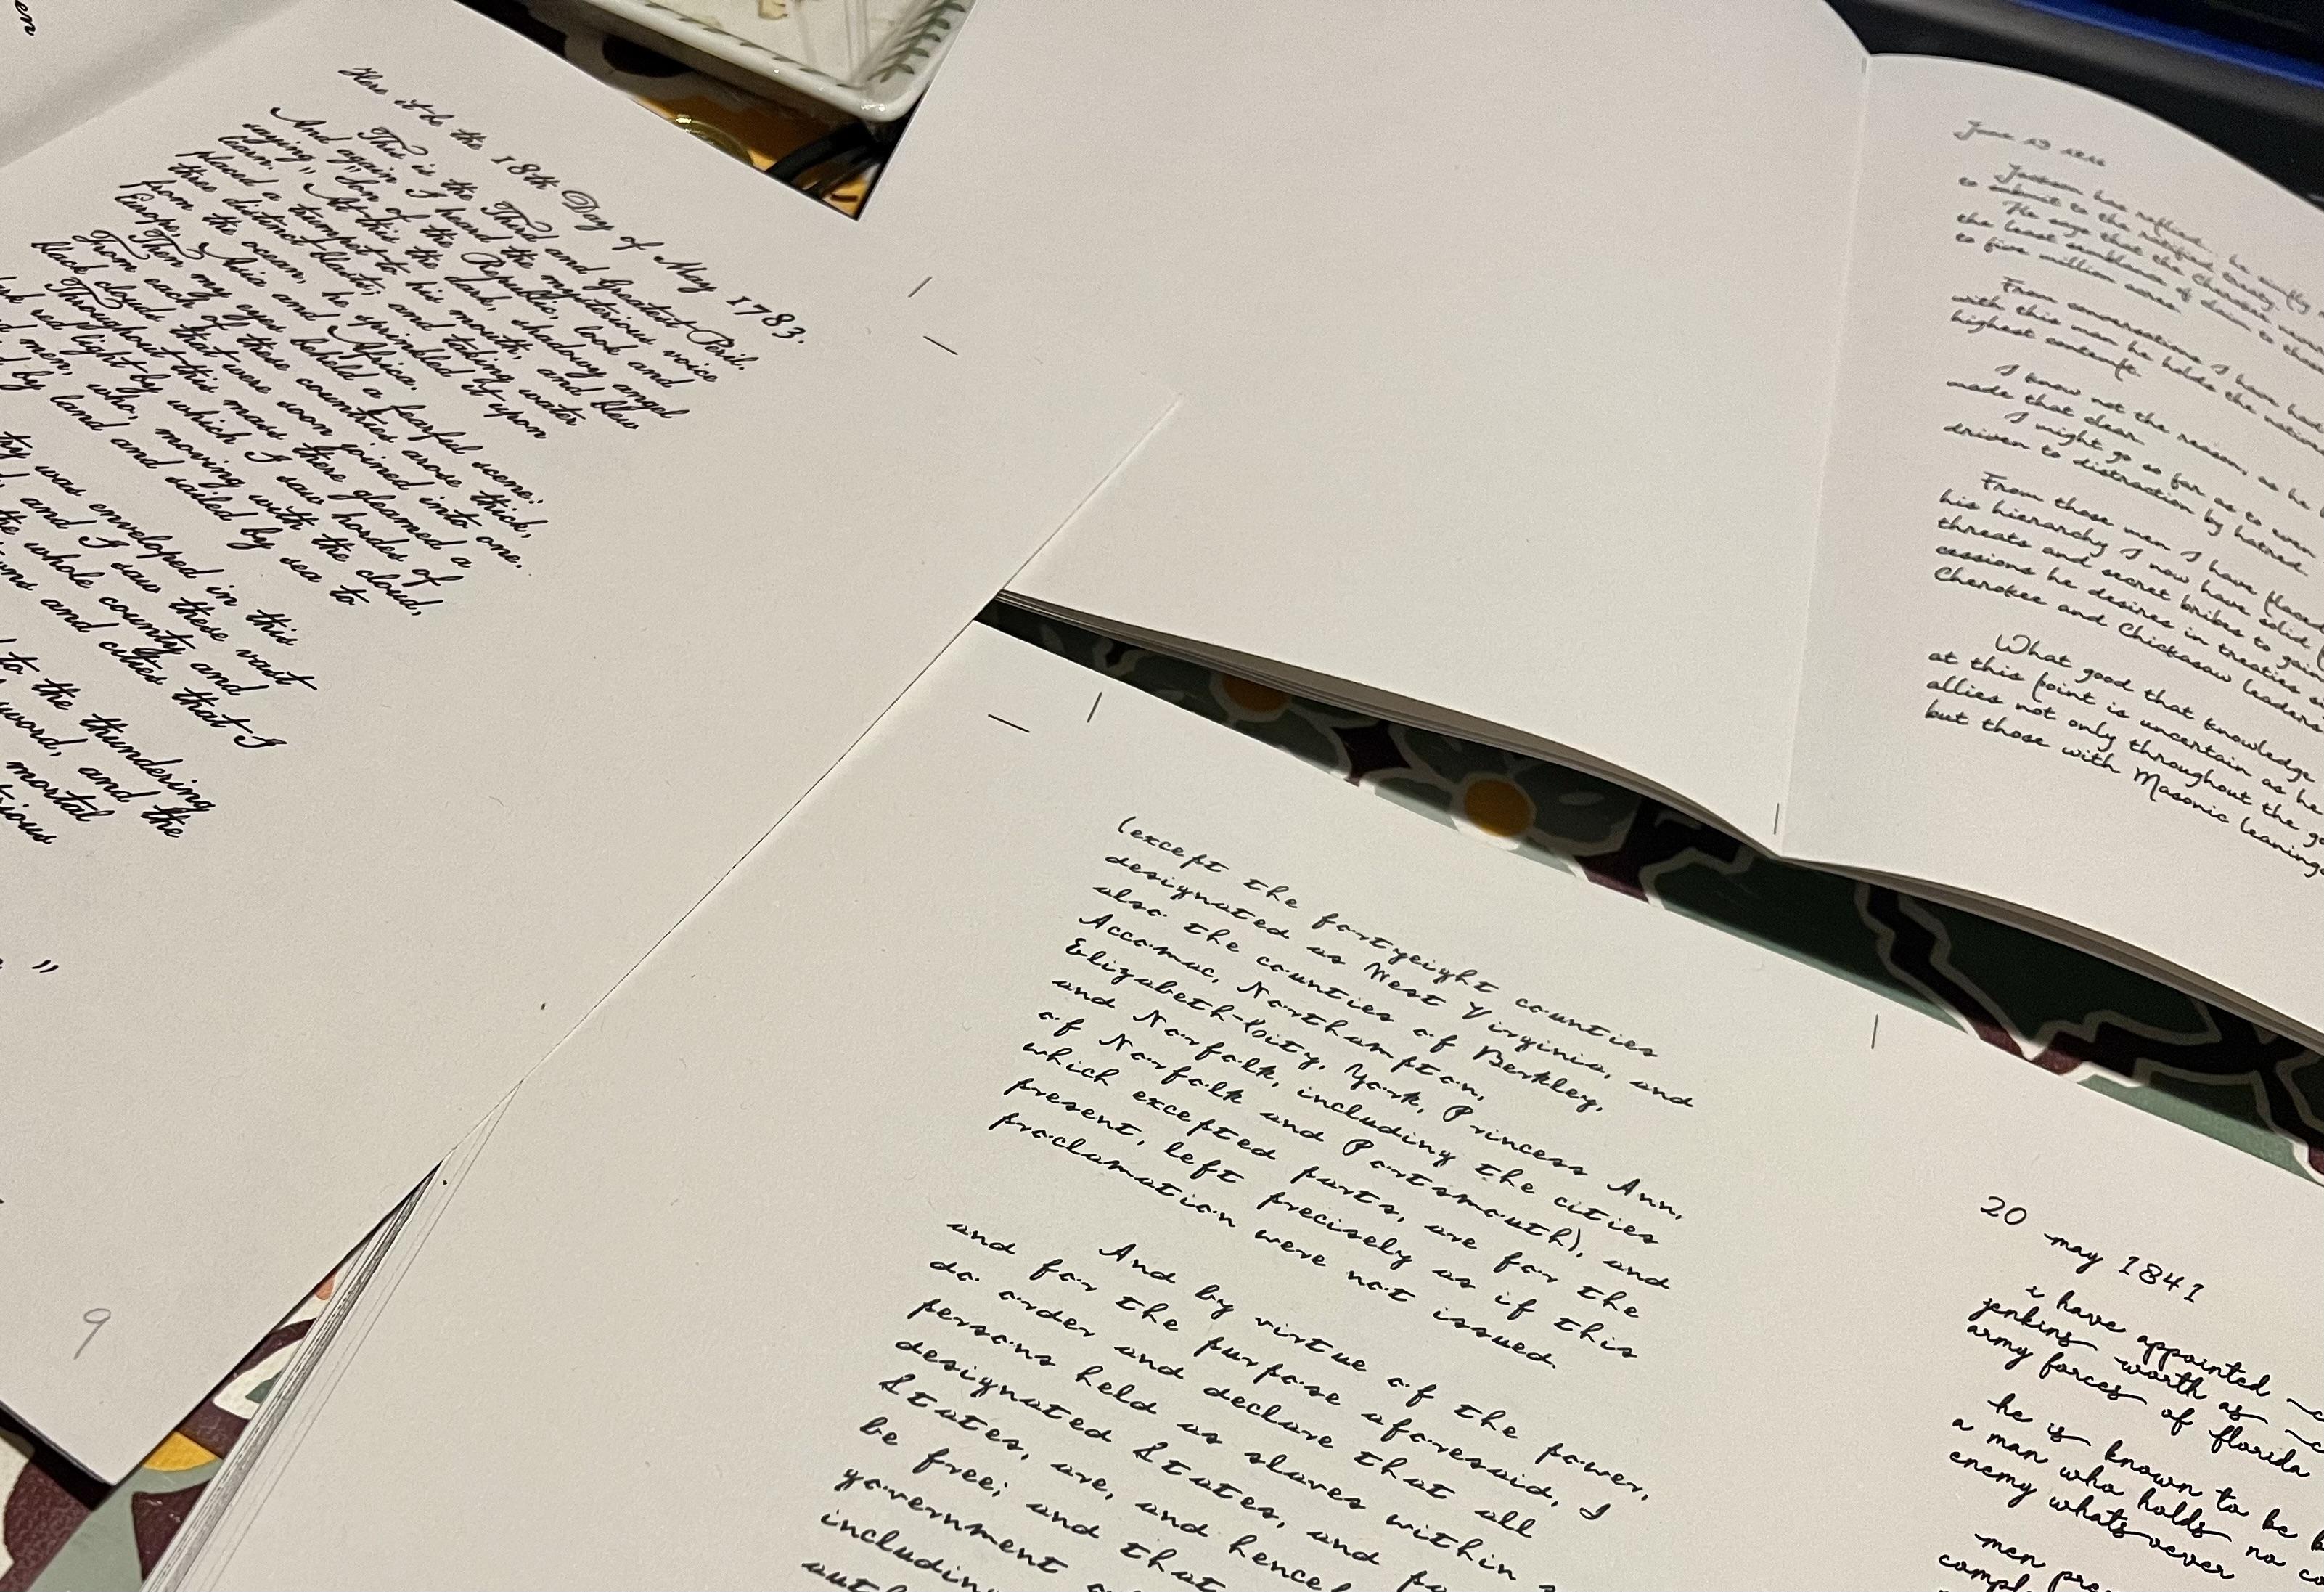 en
Here it be the 18th Day of May 1783.
This is the Third and Greatest Peril.
And again I heard the mysterious voice
saying, "Son of the Republic, look and
learn." At this the dark, shadowy angel
placed a trumpet to his mouth, and blew
three distinct blasts; and taking water
from the ocean, he sprinkled it upon
Europe, Asia and Africa.
Then my eyes beheld a fearful scene:
From each of these countries arose thick,
black clouds that were soon joined into one.
Throughout this mass there gleamed a
red light by which I saw hordes of
men, who, moving with the cloud,
by land and sailed by sea to
was enveloped in this
and I saw these vast
the whole county and
and cities that I
to the thundering
sword, and the
mortal
"
9
June
Jackson has replied, he
to submit to the ratified treaty.
He says that the Cherokee never
the least semblance of claim to
to five million acres.
From conversations I have had
with this man he holds the
highest contempt.
I know not the reason, as he
made that clear.
I might go so far as to even
driven to distraction by hatred.
From those men I have placed
his hierarchy I now have solid
threats and secret bribes to gain
cessions he desires in treaties
Cherokee and Chickasaw leaders
What good that knowledge
at this point is uncertain as he
allies not only throughout the
but those with Masonic leanings
(except the fortyeight counties
designated as West Virginia, and
also the counties of Berkley,
Accomac, Northampton,
Elizabeth-City, York, Princess Ann,
and Norfolk, including the cities
of Norfolk and Portsmouth), and
which excepted parts, are for the
present, left precisely as if this
proclamation were not issued.
And by virtue of the power,
and for the purpose aforesaid, I
do order and declare that all
persons held as slaves within
designated States, and
States, are, and
be free; and that
government
including
20
may 1841
i have appointed
jenkins worth as
army forces of florida
he is known to be
a man who holds no
enemy whatsoever
men